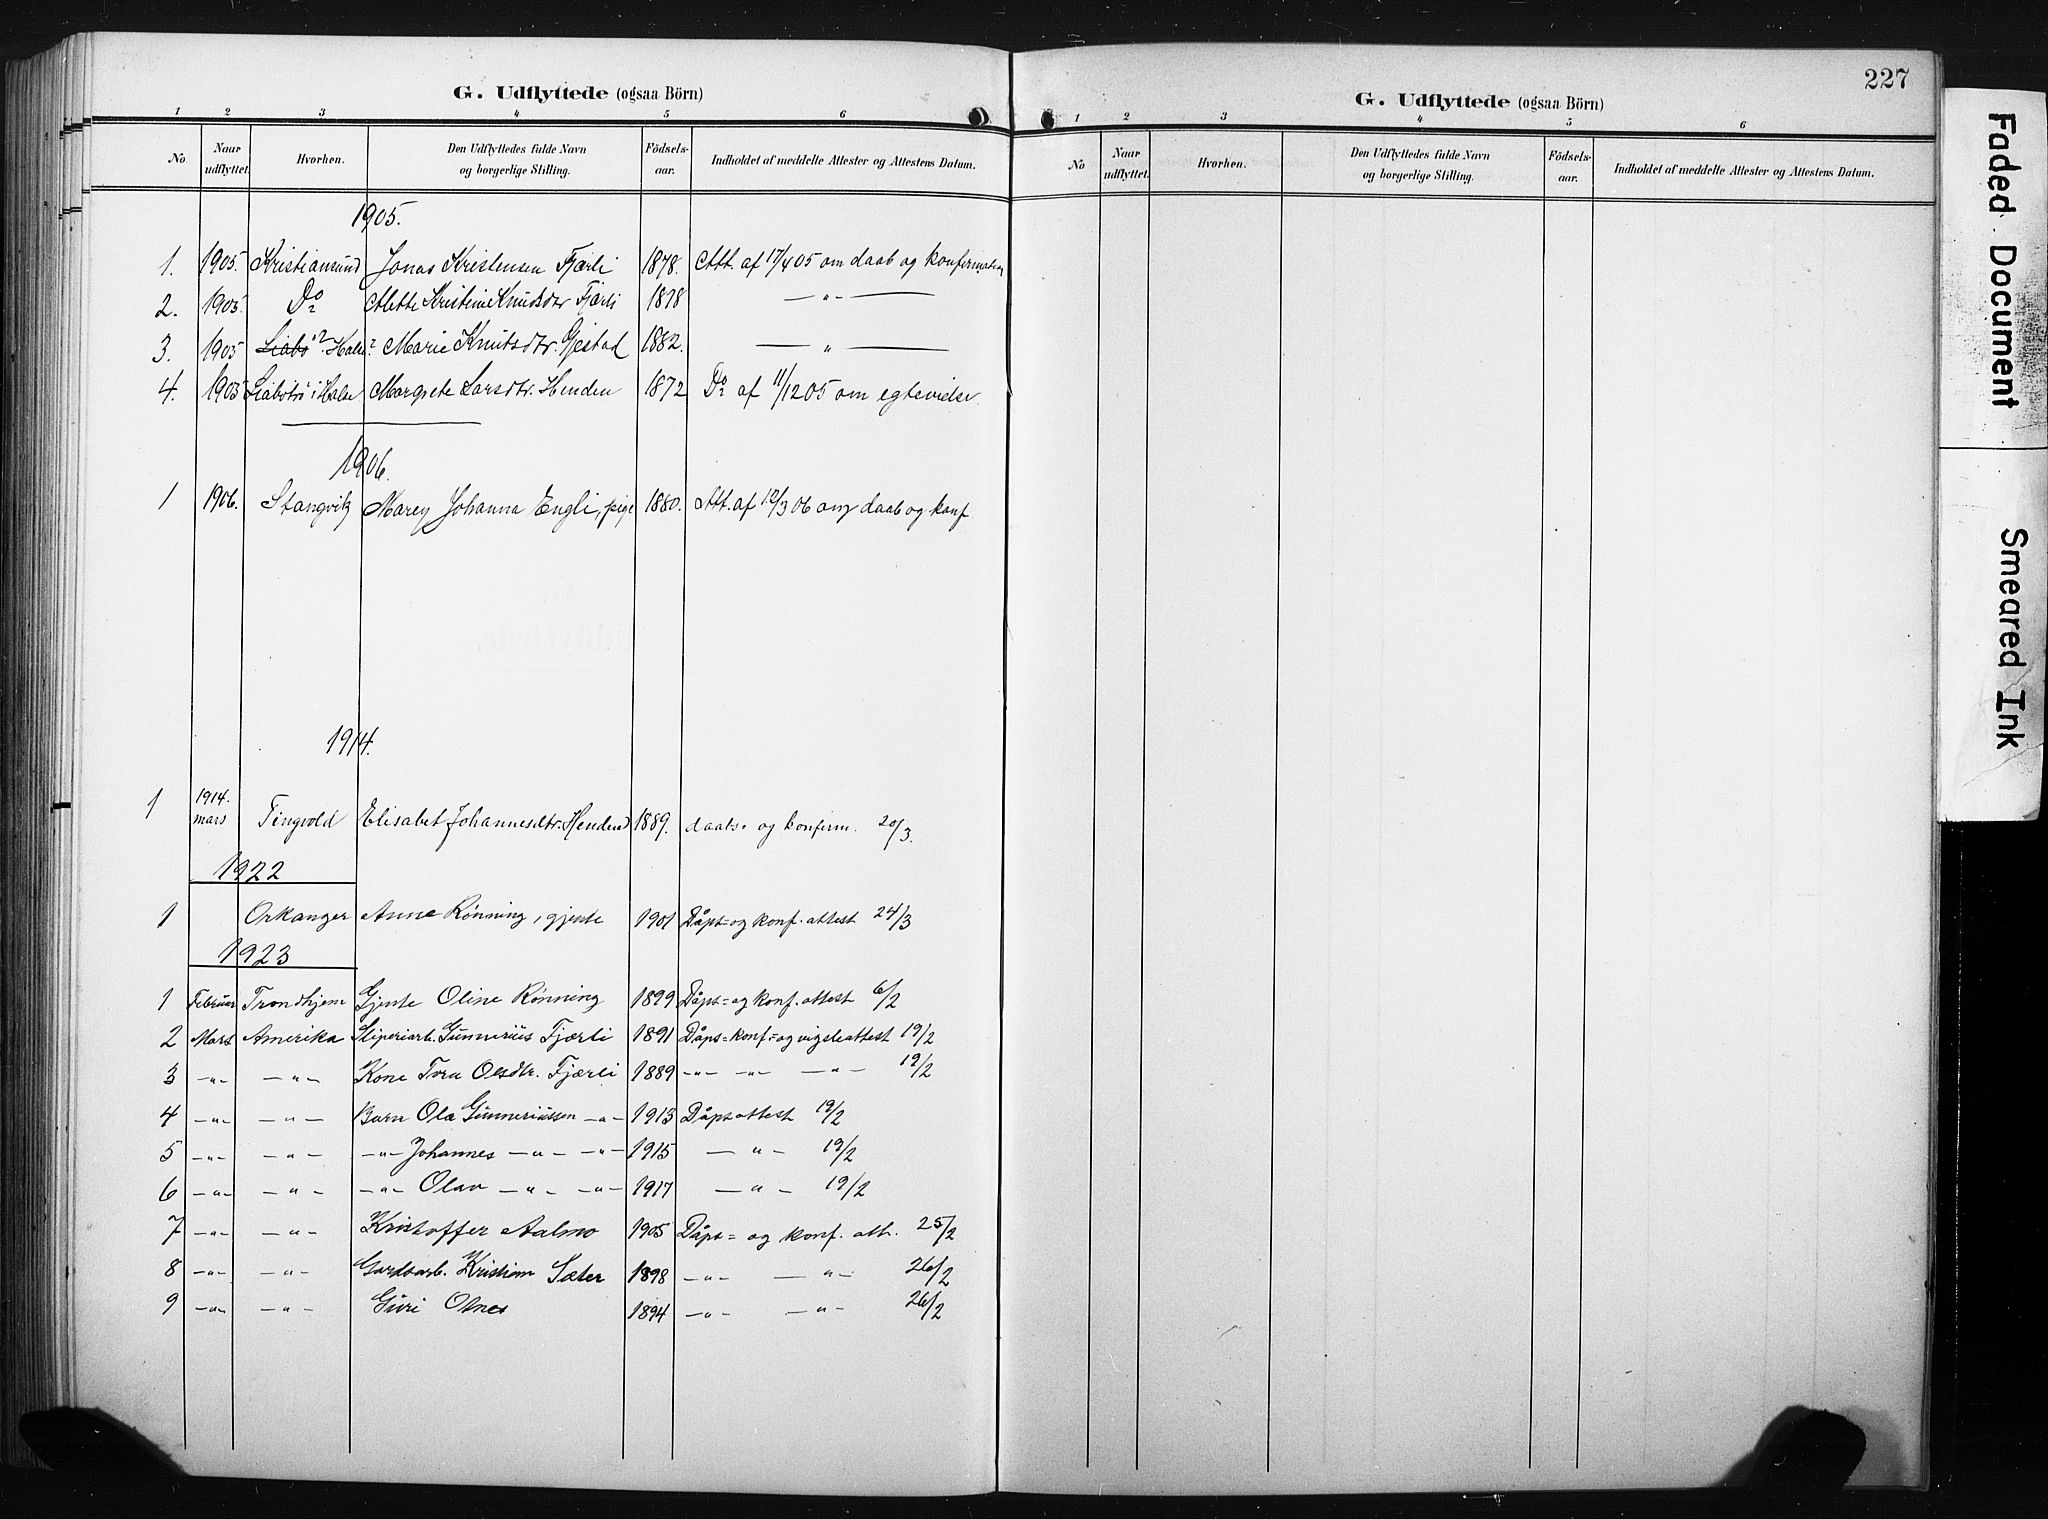 G. Udflyttede (ogsaa Börn)
1 2 3 4 5 6
No Naar udflyttet. Hvorhen. Den Udflyttedes fulde Navn og borgerlige Stilling. Födsels-aar. Indholdet af meddelte Attester og Attestens Datum.
1905.
1. 1905. Kristiansund Jonas Kristensen Fjærli 1878. Att. af 17/4 05 om daab og konfirmation
2. 1905. Do Mette Kristine Knudsdtr Fjærli 1878 — " —
3. 1905 Liabö? Halse? Marie Knutsdtr. Gjestad 1882. — " —
4. 1905 i Halse Margrete Larsdtr. Henden 1872 Do af 11/12 05 om egtevielse.
1906.
1 1906. Stangvik Marey Johanna Engli, pige 1880. Att. af 12/3 06 om daab og konf.
1914.
1 1914. mars Tingvold Elisabet Johannesdtr. Henden 1889. daabs- og konfirm. 20/3.
1922
1 Orkanger Anne Rönning, gjente 1901 Dåps= og konf. attest 24/3
1923
1 Februar Trondhjem Gjente Oline Rönning 1899 Dåps= og konf. attest 6/2
2 Mars Amerika Sliperiarb. Gunnerius Fjærli 1891 Dåps= konf= og vigsleattest 19/2
3 -"- -"- Kone Tora Olsdtr. Fjærli 1889 -"- -"- -"- 19/2
4 -"- -"- Barn Ola Gunneriussen -"- 1913 Dåpsattest 19/2
5 -"- -"- -"- Johannes -"- -"- 1915 -"- 19/2
6 -"- -"- -"- Olav -"- -"- 1917 -"- 19/2
7 -"- -"- Kristoffer Aalmo 1905 Dåps= og konf. att. 25/2
8 -"- -"- Gardsarb. Kristian Sæter 1898 -"- -"- 26/2
9 -"- -"- Guri Olnes 1894 -"- -"- 26/2
227
G. Udflyttede (ogsaa Börn)
1 2 3 4 5 6
No Naar udflyttet. Hvorhen. Den Udflyttedes fulde Navn og borgerlige Stilling. Födsels-aar. Indholdet af meddelte Attester og Attestens Datum.
Faded Document
Smeared Ink